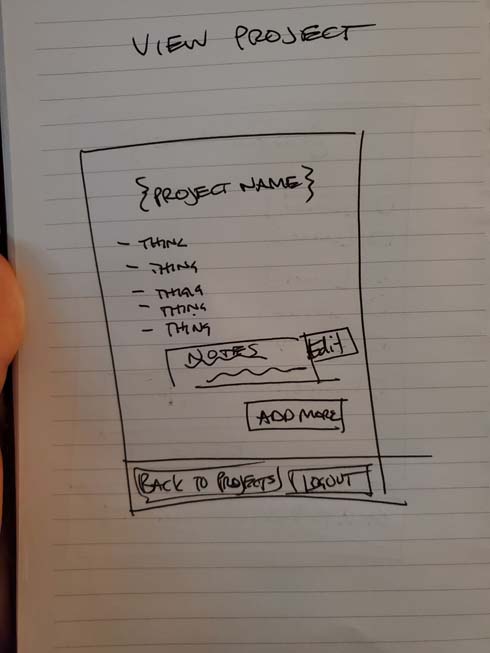 VIEW PROJECT
{PROJECT NAME}
- THING
- THING
- THING
- THING
- THING
NOTES
Edit
ADD MORE
BACK TO PROJECTS
LOGOUT